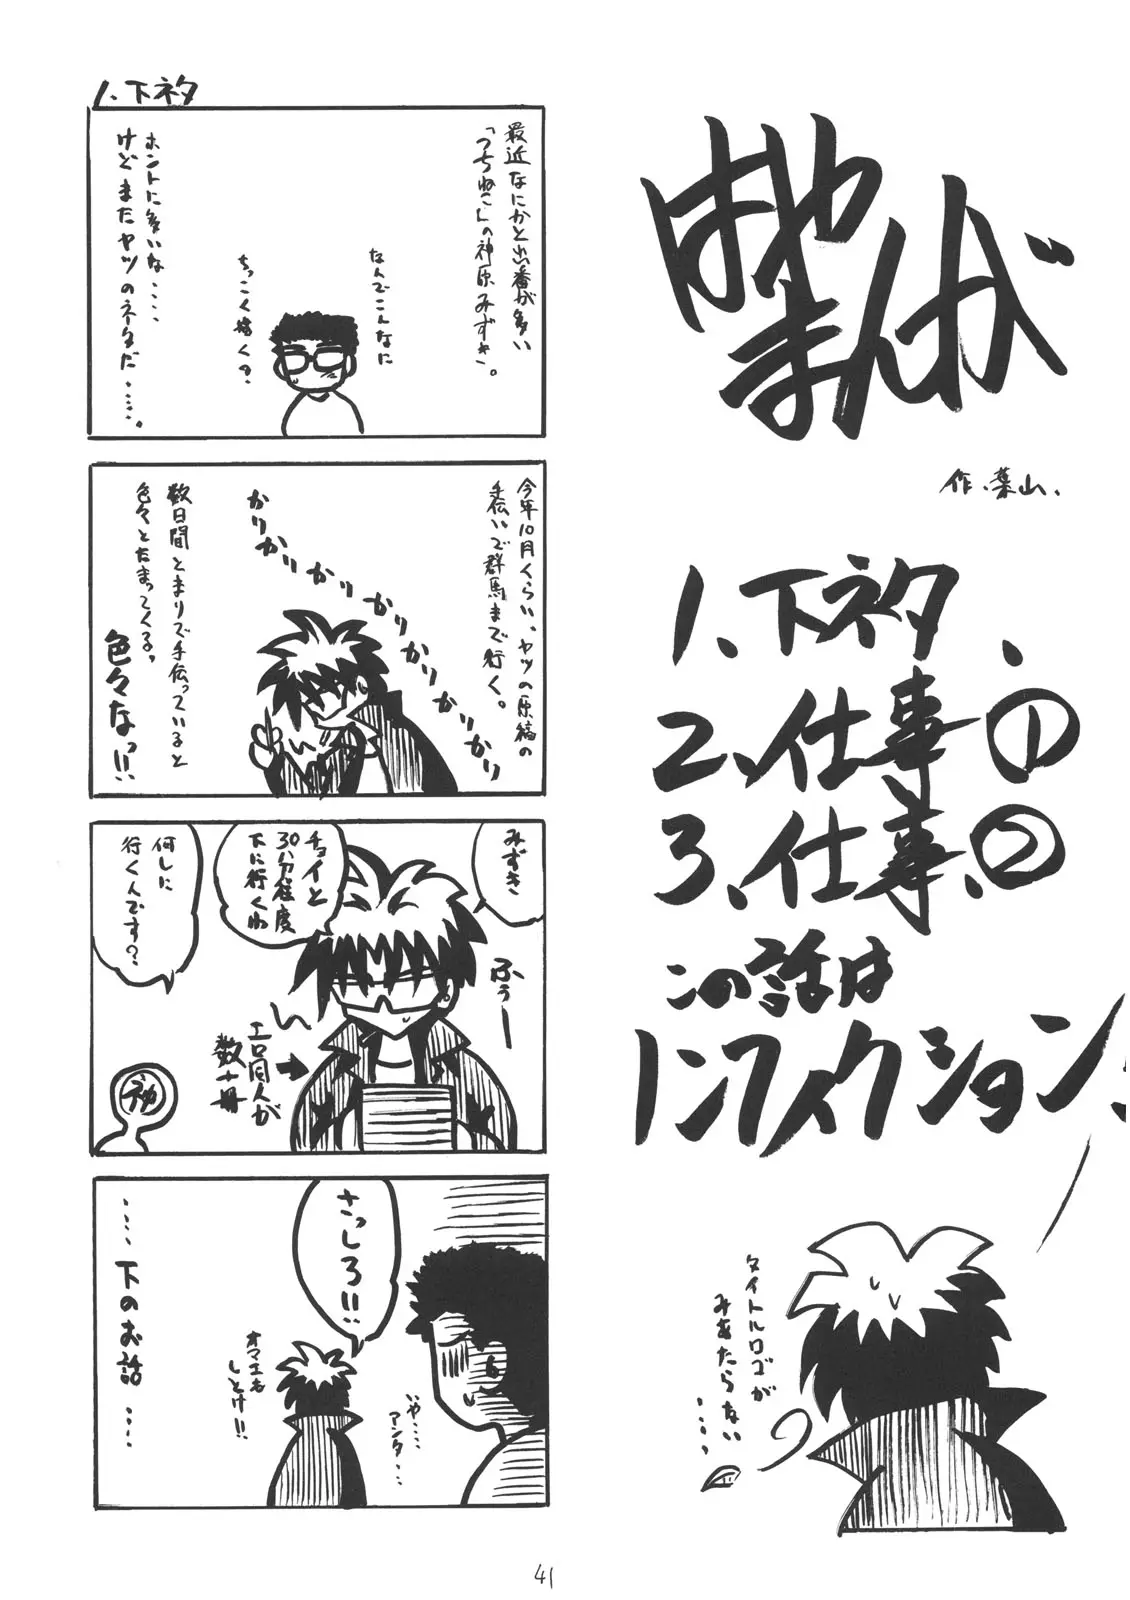 はや
まんが
作.葉山.
1、下ネタ、
2、仕事①
3、仕事、②
この話は
ノンフィクション
タイトルロゴが
みあたらない
・・・・、
1、下ネタ
最近なにかと出番が多い
「つちねこさんの神原みずき」。
なんでこんなに
ちっこく描くの?
ホントに多いな・・・・
けどまたヤツのネタだ・・・・・。
今年10月くらい、ヤツの原稿の
手伝いで群馬まで行く。
かりかりかりかりかりかりかりかり
数日間とまりで手伝っていると
色々とたまってくるっ
色々なっ!!
みずき
チョイと
30分程度
下に行くわ
何しに
行くんです?
ふぅー
エロ同人が
数十冊
さっしろ!!
オマエも
しとけ!!
いや・・・・
アンタ・・・
・・・・下のお話・・・・
41